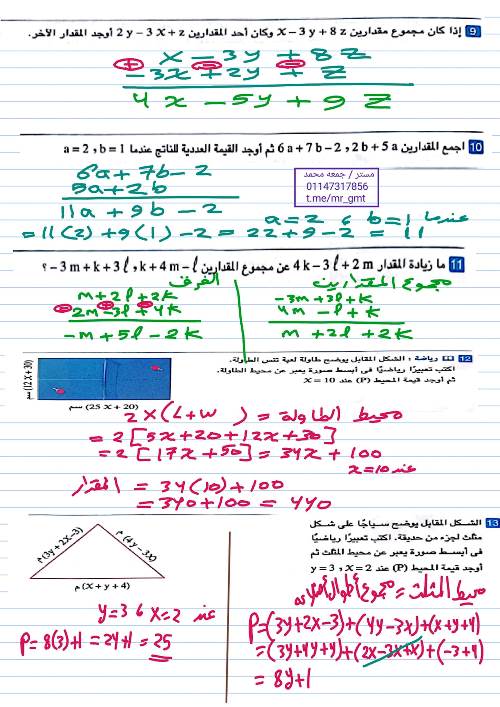 9 إذا كان مجموع مقدارين x - 3 y + 8 z وكان أحد المقدارين 2 y - 3 x + z أوجد المقدار الآخر.
x - 3y + 8z
- 3x + 2y + z
⊕ ⊖ ⊖
4x - 5y + 9z
10 اجمع المقدارين 6 a + 7 b - 2 ، 2 b + 5 a ثم أوجد القيمة العددية للناتج عندما a = 2 ، b = 1
6a + 7b - 2
5a + 2b
11a + 9b - 2
عندما a = 2 ، b = 1
= 11(2) + 9(1) - 2 = 22 + 9 - 2 = 11
مستر / جمعه محمد
01147317856
t.me/mr_gmt
11 ما زيادة المقدار 4 k - 3 l + 2 m عن مجموع المقدارين k + 4 m - l ، - 3 m + k + 3 l ؟
مجموع المقدارين
-3m + 3l + k
4m - l + k
m + 2l + 2k
الفرق
m + 2l + 2k
2m - 3l + 4k
⊖ ⊕ ⊖
-m + 5l - 2k
12 رياضة : الشكل المقابل يوضح طاولة لعبة تنس الطاولة.
اكتب تعبيرًا رياضيًا فى أبسط صورة يعبر عن محيط الطاولة.
ثم أوجد قيمة المحيط (P) عند x = 10
(12 x + 30) سم
(25 x + 20) سم
محيط الطاولة = 2 × (L + W)
= 2 [5x + 20 + 12x + 30]
= 2 [17x + 50] = 34x + 100
عند x = 10
المقدار = 34(10) + 100
= 340 + 100 = 440
13 الشكل المقابل يوضح سياجًا على شكل
مثلث لجزء من حديقة. اكتب تعبيرًا رياضيًا
فى أبسط صورة يعبر عن محيط المثلث ثم
أوجد قيمة المحيط (P) عند x = 2 ، y = 3
(3y + 2x - 3) م
(4y - 3x) م
(x + y + 4) م
محيط المثلث = مجموع أطوال أضلاعه
P = (3y + 2x - 3) + (4y - 3x) + (x + y + 4)
= (3y + 4y + y) + (2x - 3x + x) + (-3 + 4)
= 8y + 1
عند x = 2 ، y = 3
P = 8(3) + 1 = 24 + 1 = 25